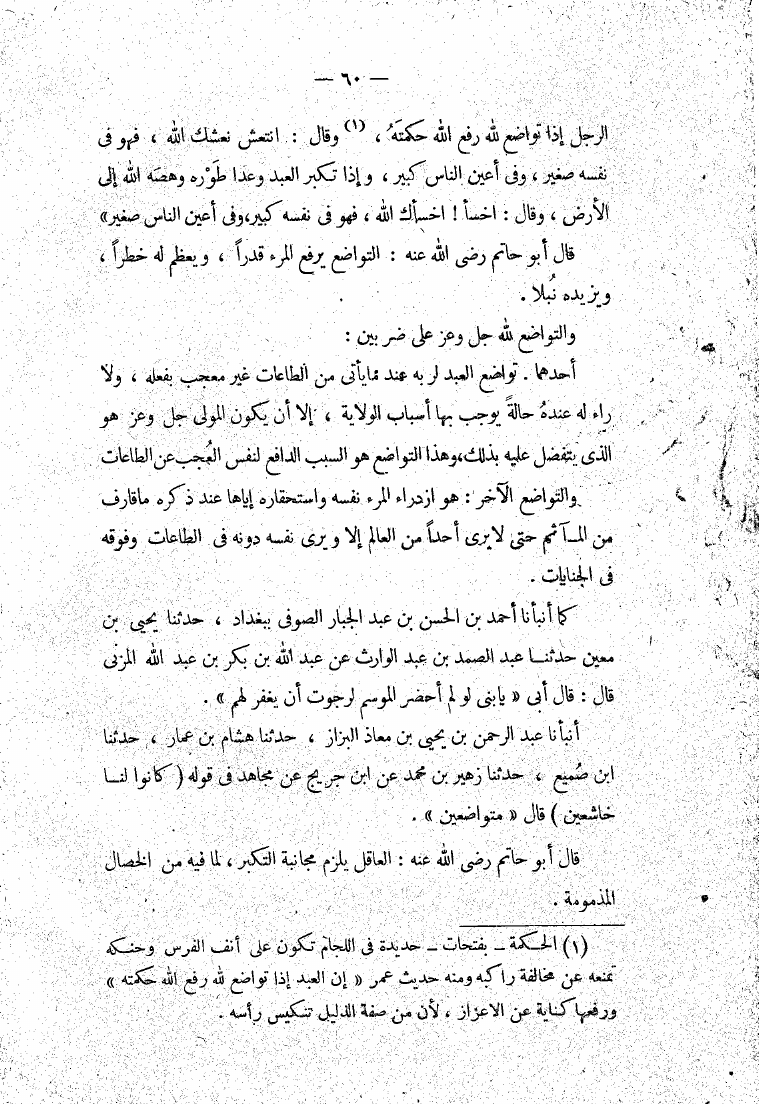 — ٦٠ —
الرجل إذا تواضع لله رفع الله حكمتَهُ ، (١) وقال : انتعش نعشك الله ، فهو فى
نفسه صغير ، وفى أعين الناس كبير ، و إذا تكبر العبد وعدا طَوْره وهصَه الله إلى
الأرض ، وقال : اخسأ ! اخسأك الله ، فهو فى نفسه كبير،وفى أعين الناس صغير»
قال أبو حاتم رضى الله عنه : التواضع يرفع المرء قدراً ، ويعظم له خطراً ،
ويزيده نُبلا .
والتواضع لله جل وعز على ضربين :
أحدهما . تواضع العبد لربه عند مايأتى من الطاعات غير معجب بفعله ، ولا
راء له عندهُ حالةً يوجب بها أسباب الولاية ، إلا أن يكون المولى جل وعز هو
الذى يتفضل عليه بذلك،وهذا التواضع هو السبب الدافع لنفس العُجب عن الطاعات
والتواضع الآخر : هو ازدراء المرء نفسه واستحقاره إياها عند ذكره ماقارف
من المـآثم حتى لايرى أحداً من العالم إلا ويرى نفسه دونه فى الطاعات وفوقه
فى الجنايات .
كما أنبأنا أحمد بن الحسن بن عبد الجبار الصوفى ببغداد ، حدثنا يحيى بن
معين حدثنـا عبد الصمد بن عبد الوارث عن عبد الله بن بكر بن عبد الله المزنى
قال : قال أبى « يابنى لو لم أحضر الموسم لرجوت أن يغفر لهم » .
أنبأنا عبد الرحمن بن يحيى بن معاذ البزاز ، حدثنا هشام بن عمار ، حدثنا
ابن صُميع ، حدثنا زهير بن محمد عن ابن جريج عن مجاهد فى قوله ( كانوا لنـا
خاشعين ) قال « متواضعين » .
قال أبو حاتم رضى الله عنه : العاقل يلزم مجانبة التكبر ، لما فيه من الخصال
المذمومة .
(١) الحـكمة ـ بفتحات ـ حديدة فى اللجام تكون على أنف الفرس وحنـكه
تمنعه عن مخالفة راكبه ومنه حديث عمر « إن العبد إذا تواضع لله رفع الله حكمته »
ورفعها كناية عن الاعزاز ، لأن من صفة الذليل تنكيس رأسه .